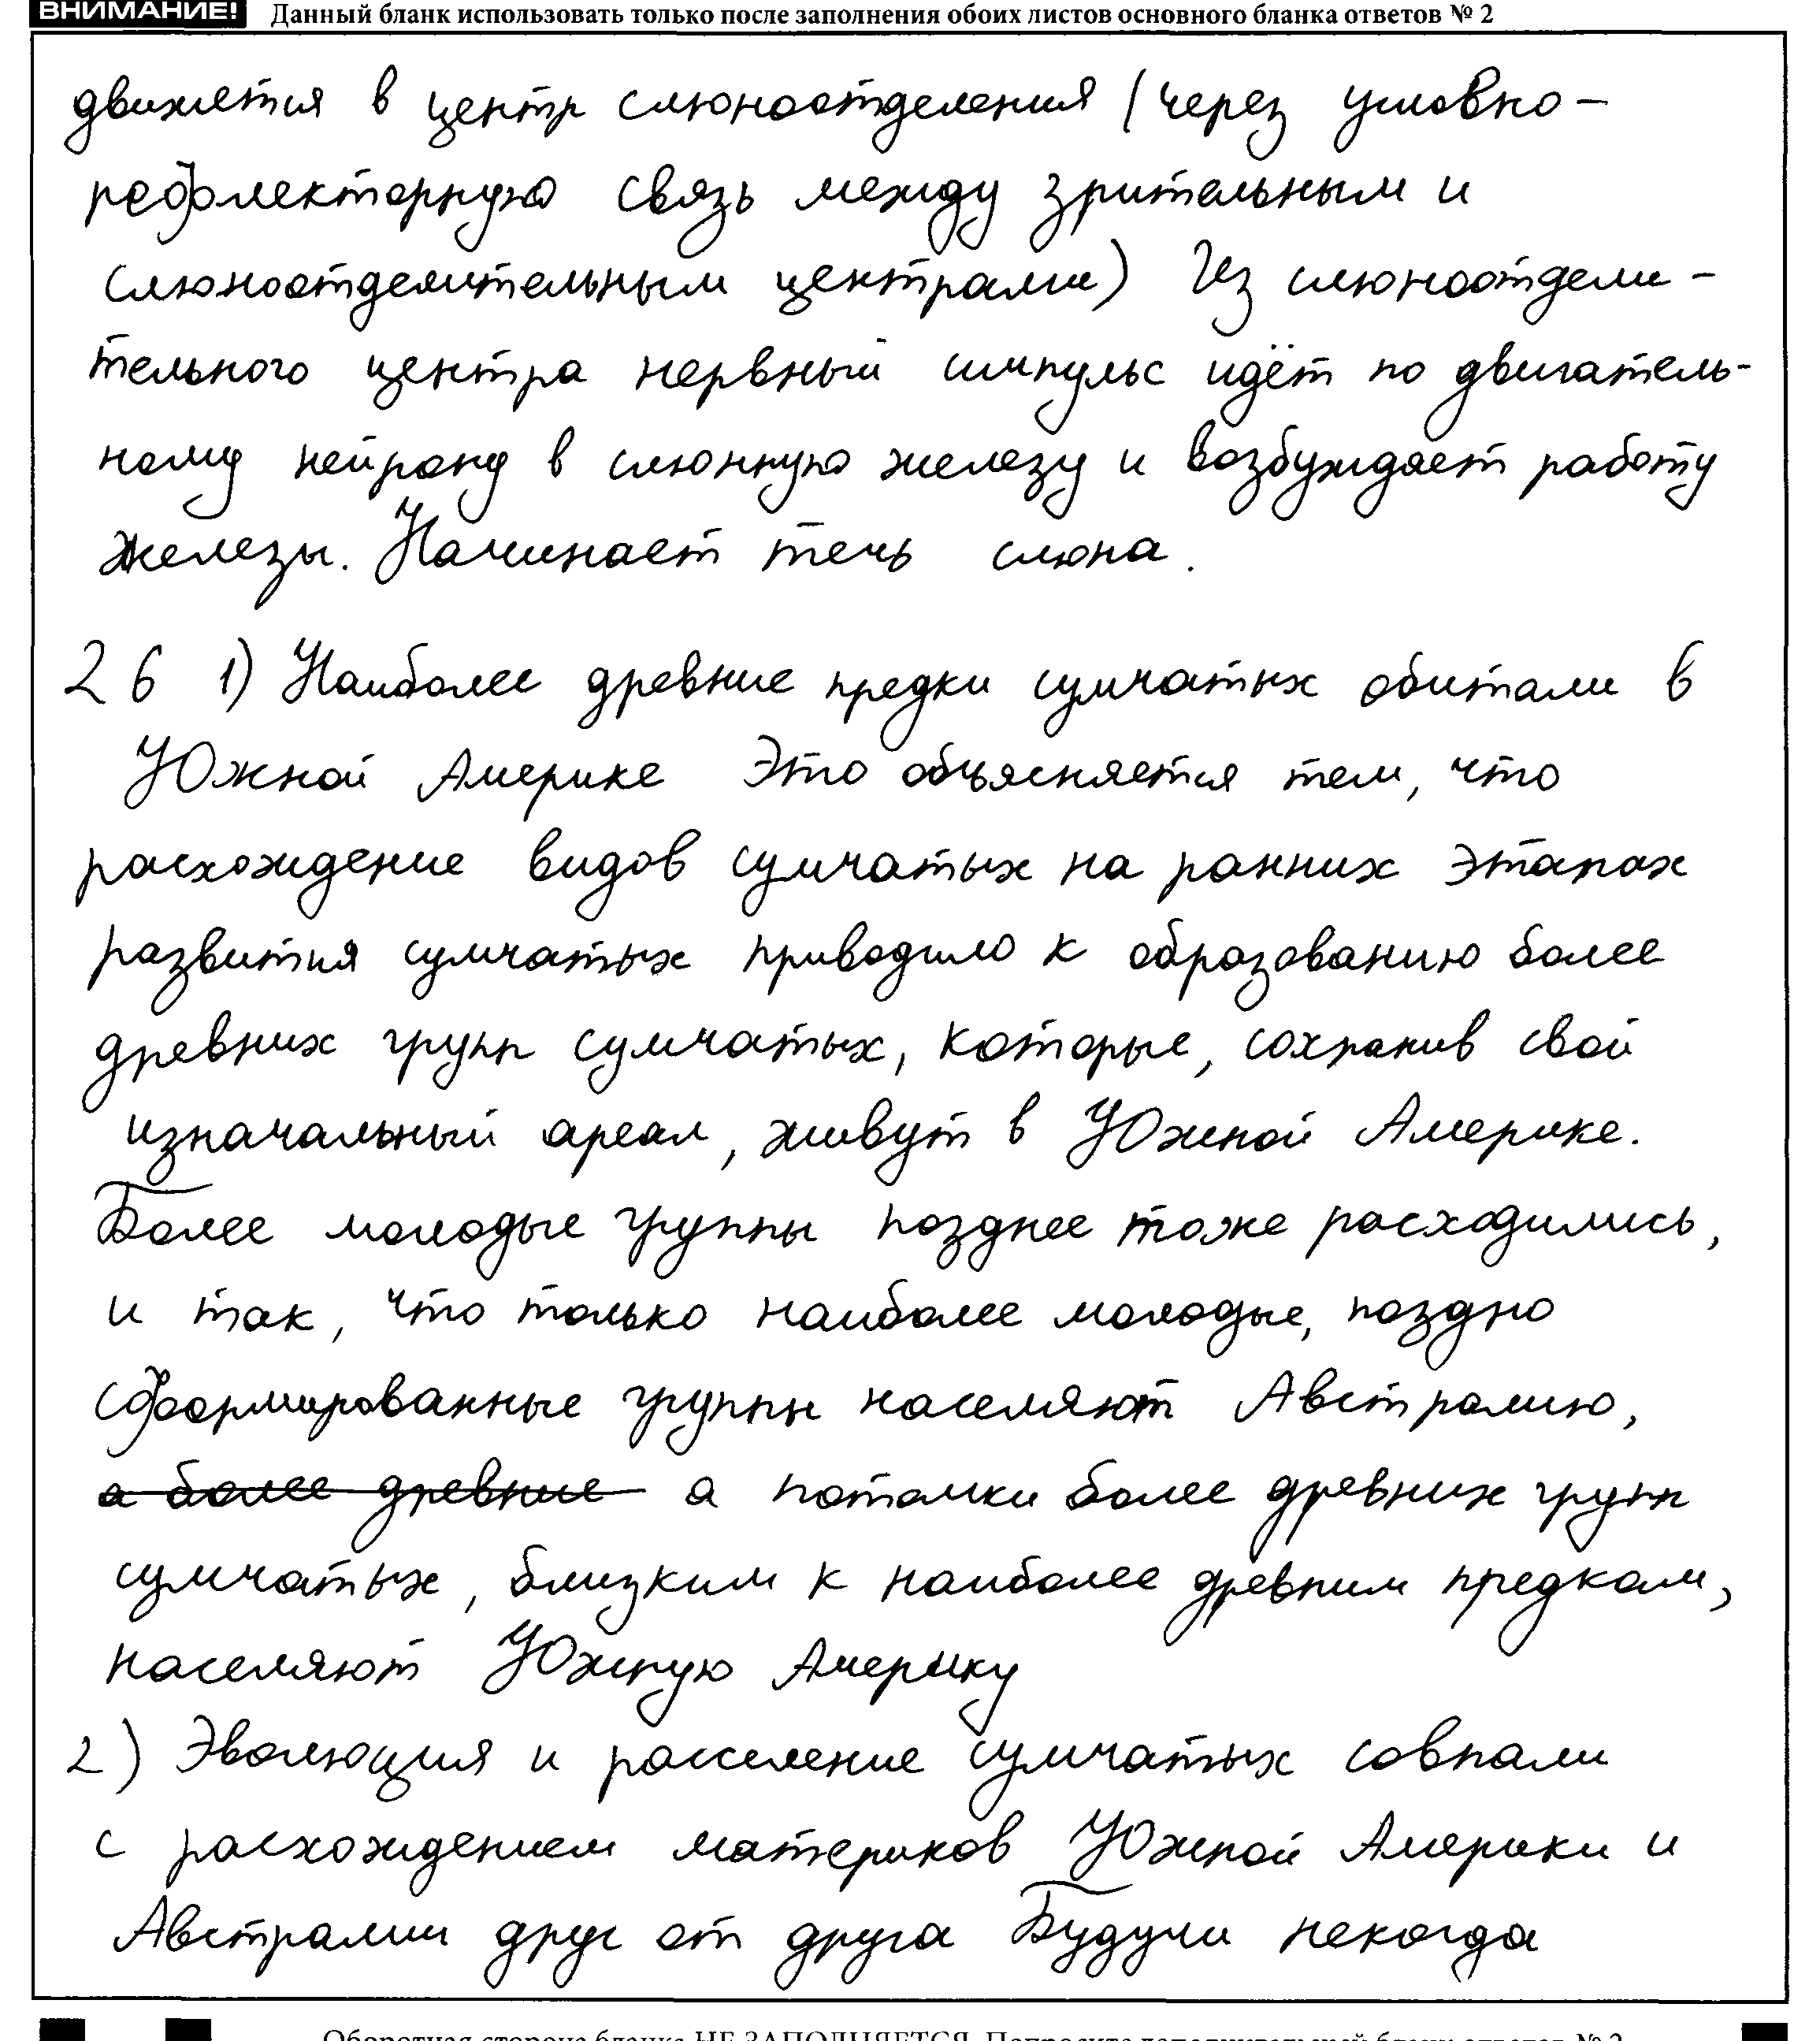 ВНИМАНИЕ! Данный бланк использовать только после заполнения обоих листов основного бланка ответов № 2
движется в центр слюноотделения (через условно-
рефлекторную связь между зрительным и
слюноотделительным центрами) Из слюноотдели-
тельного центра нервный импульс идёт по двигатель-
ному нейрону в слюнную железу и возбуждает работу
железы. Начинает течь слюна.
26 1) Наиболее древние предки сумчатых обитали в
Южной Америке Это объясняется тем, что
расхождение видов сумчатых на ранних этапах
развития сумчатых приводило к образованию более
древних групп сумчатых, которые, сохранив свой
изначальный ареал, живут в Южной Америке.
Более молодые группы позднее тоже расходились,
и так, что только наиболее молодые, поздно
сформированные группы населяют Австралию,
а более древние а потомки более древних групп
сумчатых, близким к наиболее древним предкам,
населяют Южную Америку
2) Эволюция и расселение сумчатых совпали
с расхождением материков Южной Америки и
Австралии друг от друга Будучи некогда
Оборотная сторона бланка НЕ ЗАПОЛНЯЕТСЯ. Попросите дополнительный бланк ответов № 2